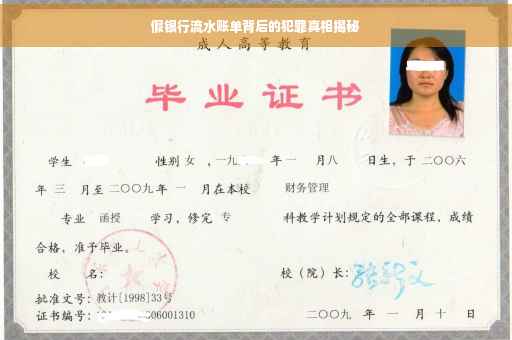 假银行流水账单背后的犯罪真相揭秘
成人高等教育
毕业证书
学生 性别 女 ，一九 年 一 月 八 日生，于 二〇〇六
年 三 月至 二〇〇九 年 一 月在本校 财务管理
专业 函授 学习，修完 专 科教学计划规定的全部课程，成绩
合格，准予毕业。
校 名： 校（院）长：
批准文号：教计[1998]33号
证书编号： 606001310 二〇〇九 年 一 月 十 日